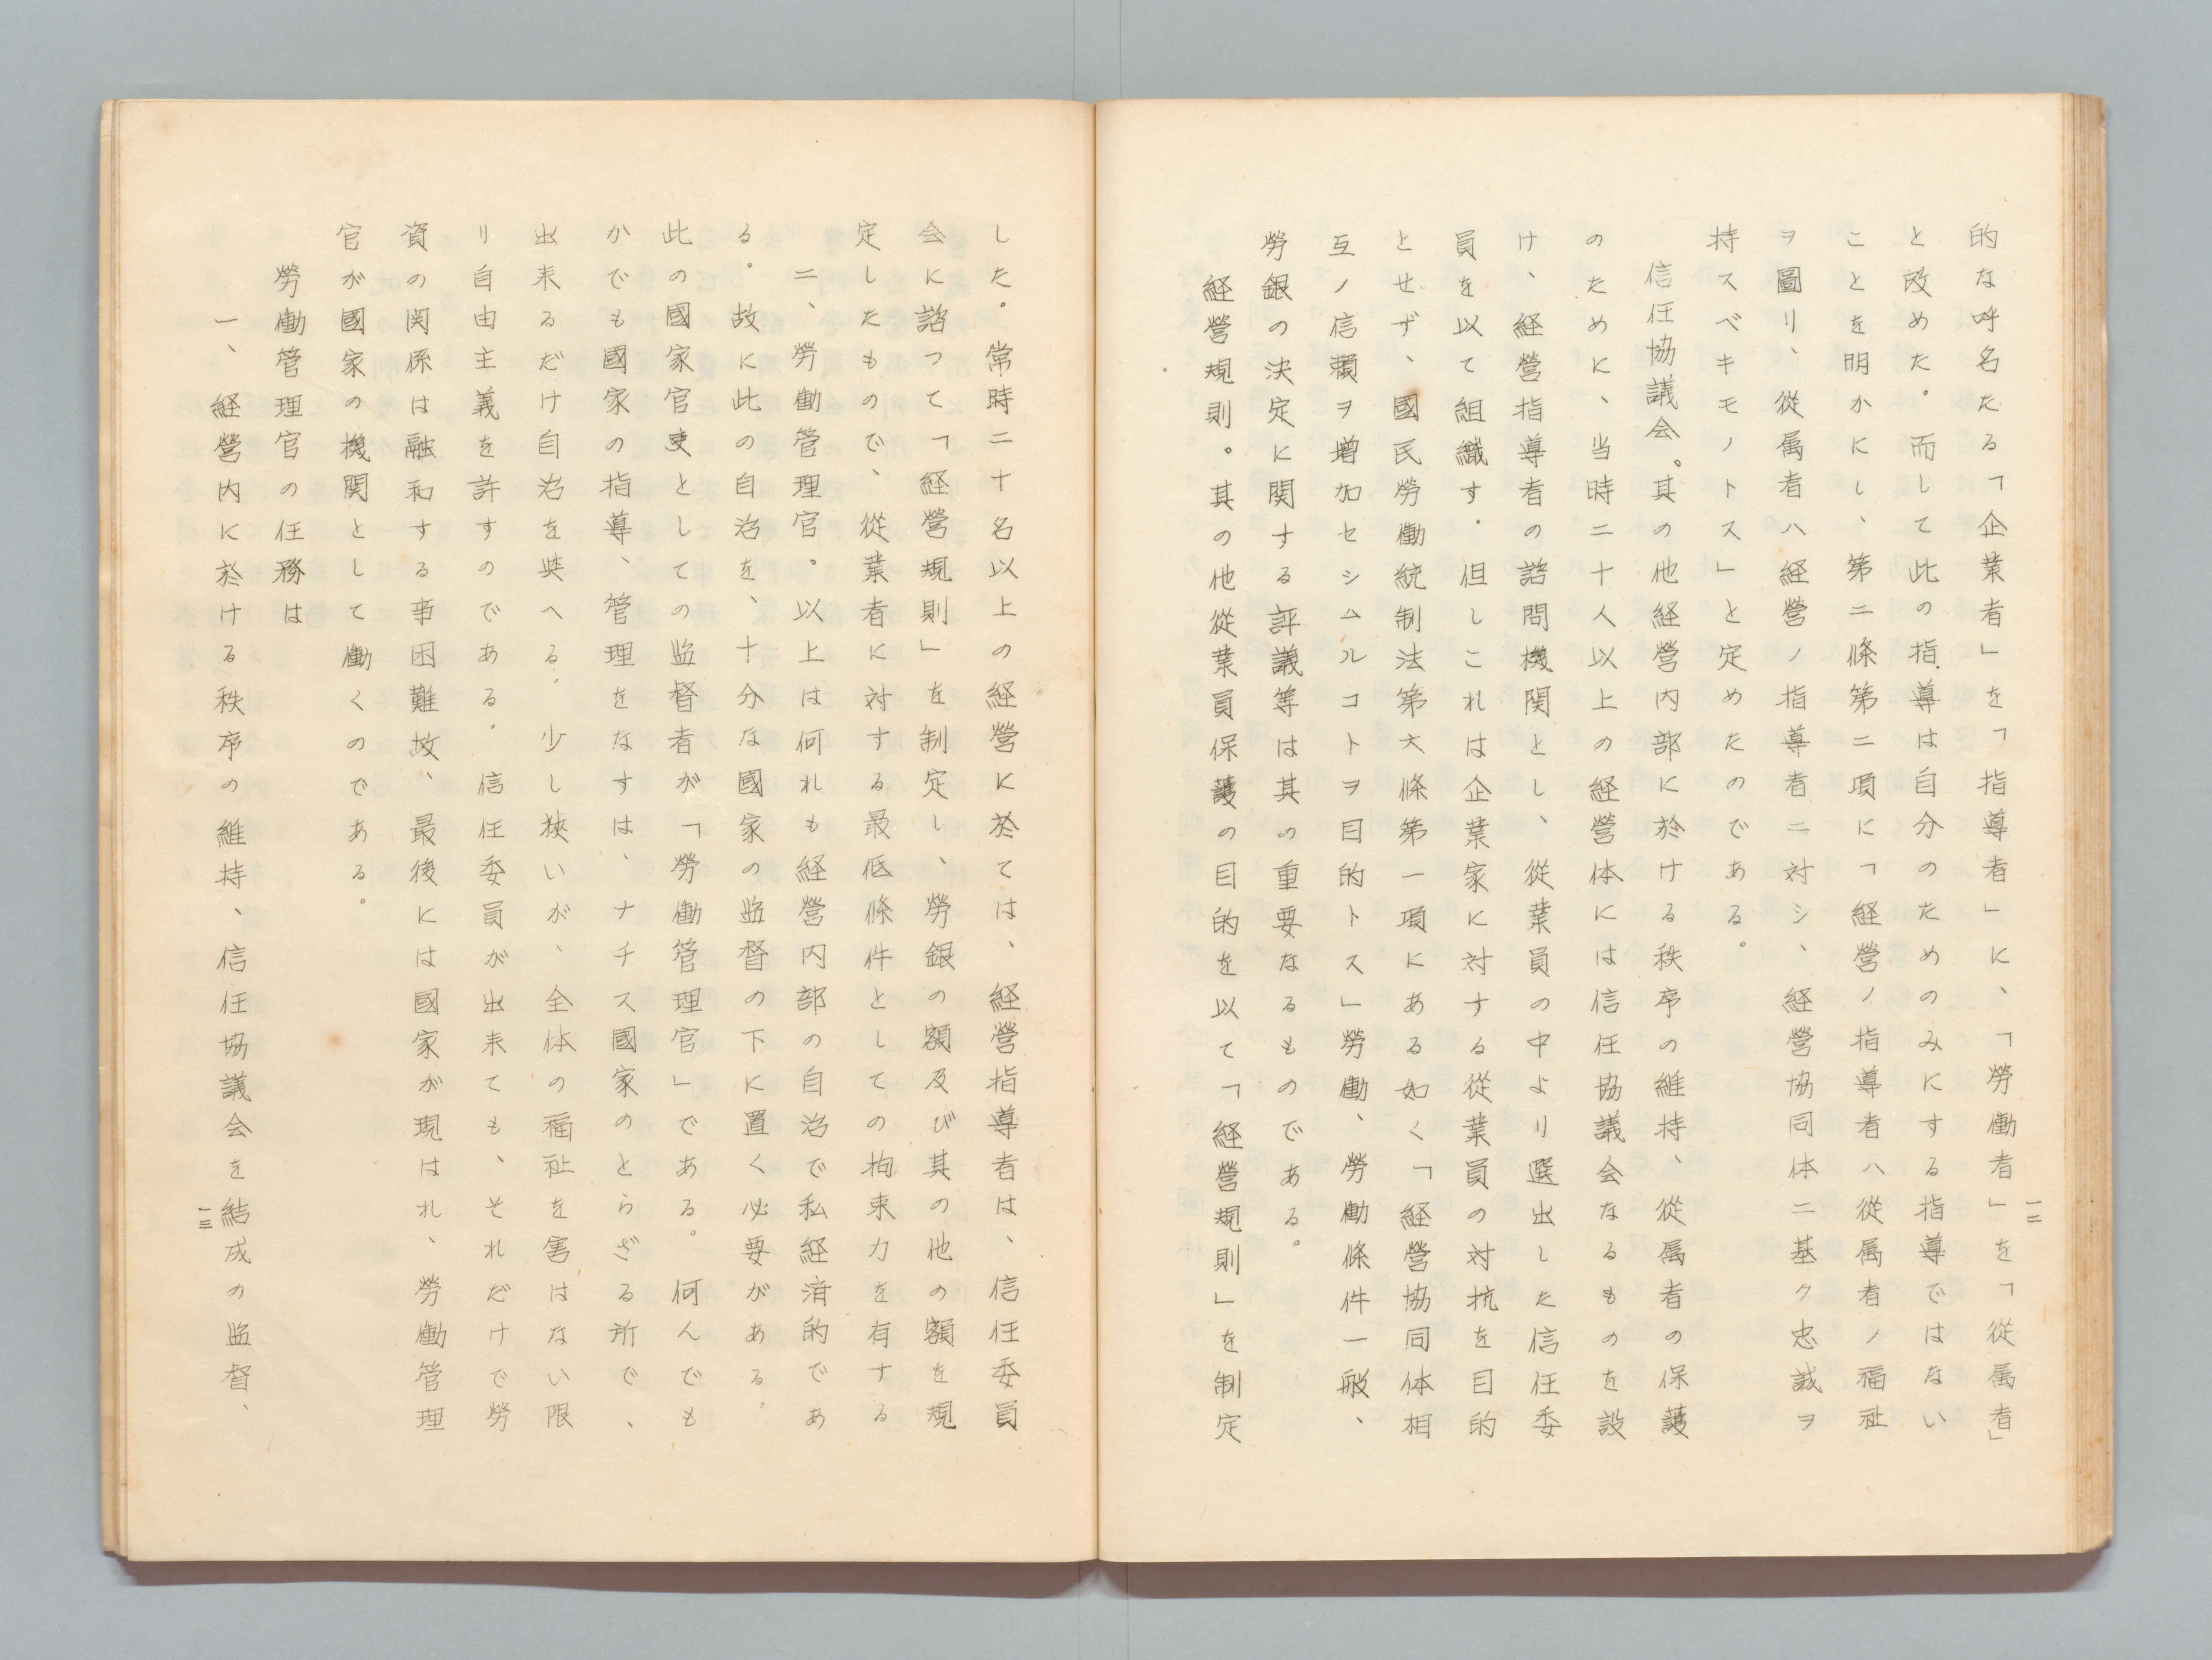 的な呼名たる「企業者」を「指導者」に、「勞働者」を「從属者」
と改めた。而して此の指導は自分のためのみにする指導ではない
ことを明かにし、第二條第二項に「経營ノ指導者ハ從属者ノ福祉
ヲ圖リ、從属者ハ経營ノ指導者ニ対シ、経營協同体ニ基ク忠誠ヲ
持スベキモノトス」と定めたのである。
信任協議会。其の他経營内部に於ける秩序の維持、從属者の保護
のために、当時二十人以上の経營体には信任協議会なるものを設
け、経營指導者の諮問機関とし、從業員の中より選出した信任委
員を以て組織す。但しこれは企業家に対する從業員の対抗を目的
とせず、國民勞働統制法第六條第一項にある如く「経營協同体相
互ノ信賴ヲ増加セシムルコトヲ目的トス」勞働、勞働條件一般、
勞銀の決定に関する評議等は其の重要なるものである。
経營規則。其の他從業員保護の目的を以て「経營規則」を制定
一二
した。常時二十名以上の経營に於ては、経營指導者は、信任委員
会に諮つて「経營規則」を制定し、勞銀の額及び其の他の額を規
定したもので、從業者に対する最低條件としての拘束力を有する
二、勞働管理官。以上は何れも経營内部の自治で私経済的であ
る。故に此の自治を、十分な國家の監督の下に置く必要がある。
此の國家官吏としての監督者が「勞働管理官」である。何んでも
かでも國家の指導、管理をなすは、ナチス國家のとらざる所で、
出来るだけ自治を與へる。少し狹いが、全体の福祉を害はない限
り自由主義を許すのである。信任委員が出来ても、それだけで勞
資の関係は融和する事困難故、最後には國家が現はれ、勞働管理
官が國家の機関として働くのである。
勞働管理官の任務は
一、経營内に於ける秩序の維持、信任協議会を結成の監督、
一三